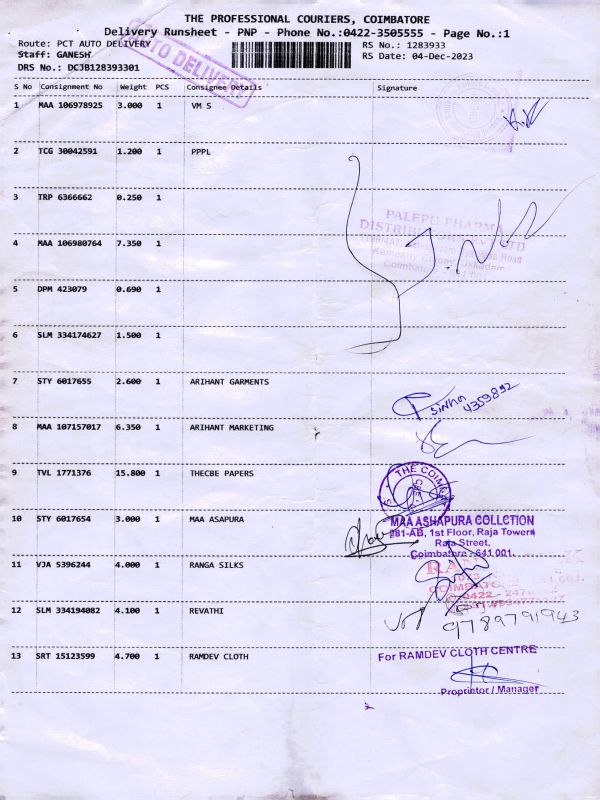 THE PROFESSIONAL COURIERS, COIMBATORE
Delivery Runsheet - PNP - Phone No.:0422-3505555 - Page No.:1
Route: PCT AUTO DELIVERY
RS No.: 1283933
Staff: GANESH
RS Date: 04-Dec-2023
DRS No.: DCJB128393301
AUTO DELIVERY
S No Consignment No Weight PCS Consignee Details Signature
1 MAA 106978925 3.000 1 VM S
2 TCG 30042591 1.200 1 PPPL
3 TRP 6366662 0.250 1
PALEPU PHARMA
4 MAA 106980764 7.350 1
5 DPM 423079 0.690 1
6 SLM 334174627 1.500 1
7 STY 6017655 2.600 1 ARIHANT GARMENTS
Sinha
4359892
8 MAA 107157017 6.350 1 ARIHANT MARKETING
9 TVL 1771376 15.800 1 THECBE PAPERS
THE COIMB
10 STY 6017654 3.000 1 MAA ASAPURA
MAA ASHAPURA COLLCTION
#81-AB, 1st Floor, Raja Towers
Raja Street,
Coimbatore - 641 001.
11 VJA 5396244 4.000 1 RANGA SILKS
12 SLM 334194082 4.100 1 REVATHI
9789791943
13 SRT 15123599 4.700 1 RAMDEV CLOTH
For RAMDEV CLOTH CENTRE
Proprietor / Manager